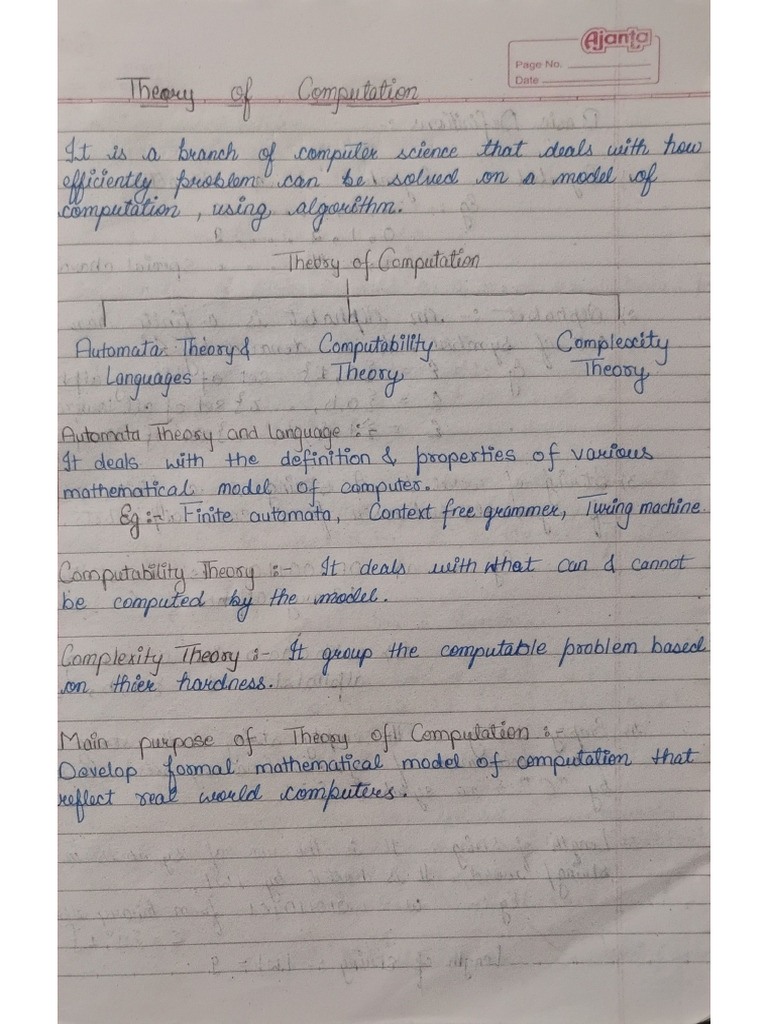 Ajanta
Page No.
Date
Theory of Computation
It is a branch of computer science that deals with how
efficiently problem can be solved on a model of
computation, using algorithm.
Theory of Computation
Automata Theory & Computability Complexity
Languages Theory Theory
Automata Theory and language :-
It deals with the definition & properties of various
mathematical model of computer.
Eg :- Finite automata, Context free grammer, Turing machine.
Computability Theory :- It deals with what can & cannot
be computed by the model.
Complexity Theory :- It group the computable problem based
on thier hardness.
Main purpose of Theory of Computation :-
Develop formal mathematical model of computation that
reflect real world computers.